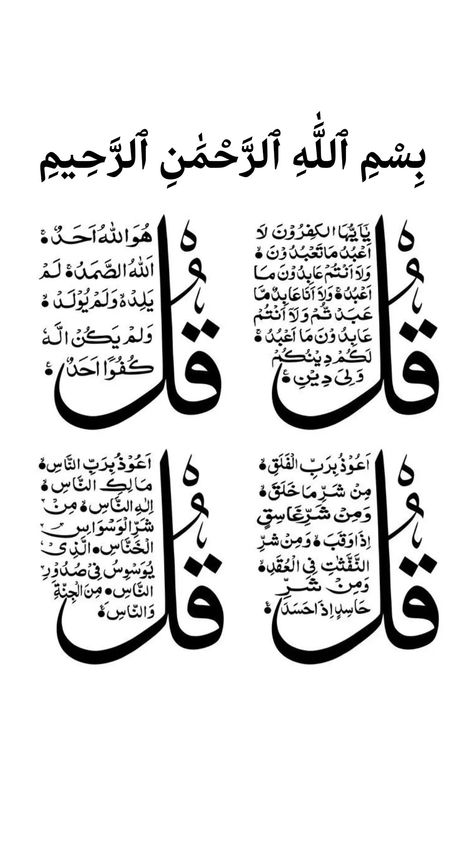 بِسْمِ ٱللَّٰهِ ٱلرَّحْمَٰنِ ٱلرَّحِيمِ
قُلْ
يٰٓاَيُّهَا الْكٰفِرُوْنَ لَا
اَعْبُدُ مَا تَعْبُدُوْنَ
وَلَا اَنْتُمْ عَابِدُوْنَ مَا
اَعْبُدُ وَلَا اَنَا عَابِدٌ مَّا
عَبَدْ تُّمْ وَلَا اَنْتُمْ
عَابِدُوْنَ مَا اَعْبُدُ
لَكُمْ دِيْنُكُمْ
وَلِىَ دِيْنِ
قُلْ
هُوَ اللّٰهُ اَحَدٌ
اَللّٰهُ الصَّمَدُ لَمْ
يَلِدْ وَلَمْ يُوْلَدْ
وَلَمْ يَكُنْ لَّهٗ
كُفُوًا اَحَدٌ
قُلْ
اَعُوْذُ بِرَبِّ الْفَلَقِ
مِنْ شَرِّ مَا خَلَقَ
وَمِنْ شَرِّ غَاسِقٍ
اِذَا وَقَبَ وَمِنْ شَرِّ
النَّفّٰثٰتِ فِي الْعُقَدِ
وَمِنْ شَرِّ
حَاسِدٍ اِذَا حَسَدَ
قُلْ
اَعُوْذُ بِرَبِّ النَّاسِ
مَالِكِ النَّاسِ
اِلٰهِ النَّاسِ مِنْ
شَرِّ الْوَسْوَاسِ
الْخَنَّاسِ الَّذِيْ
يُوَسْوِسُ فِيْ صُدُوْرِ
النَّاسِ مِنَ الْجِنَّةِ
وَالنَّاسِ